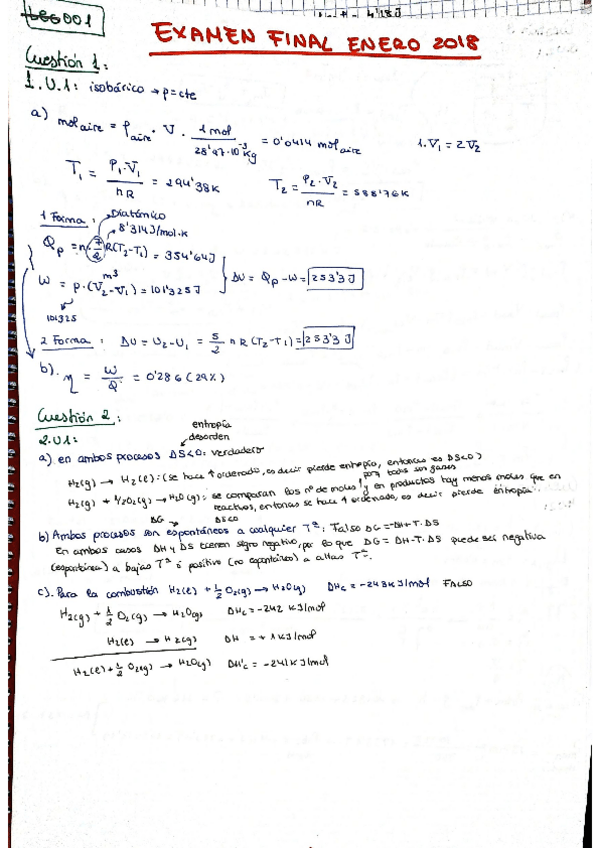 LEG001
EXAMEN FINAL ENERO 2018
Cuestión 1:
1.U.1: isobárico → p=cte
a) mol aire = ρaire · V · 1 mol / 28'97·10⁻³ Kg = 0'0414 mol aire 1.V₁ = 2V₂
T₁ = P₁·V₁ / nR = 294'38K T₂ = P₂·V₂ / nR = 588'76K
1 Forma: Diatómico
8'314J/mol·K
Qp = n·7/2 R(T₂-T₁) = 354'64J
W = p·(V₂-V₁) = 101'325J ΔU = Qp - W = 253'3 J
m³
101325
2 Forma: ΔU = U₂-U₁ = 5/2 n R (T₂-T₁) = 253'3 J
b). η = W/Q = 0'286 (29%)
Cuestión 2:
2.U1:
entropía
desorden
a) en ambos procesos ΔS<0: verdadero
H₂(g) → H₂(l): (se hace ↑ ordenado, es decir pierde entropía, entonces es ΔS<0)
porq todos son gases
H₂(g) + 1/2O₂(g) → H₂O(g): se comparan los nº de moles y en productos hay menos moles que en
reactivos, entonces se hace ↑ ordenado, es decir pierde entropía
ΔG → ΔS<0
b) Ambos procesos son espontáneos a cualquier Tª: Falso ΔG = ΔH-T·ΔS
En ambos casos ΔH y ΔS tienen signo negativo, por lo que ΔG = ΔH-T·ΔS puede ser negativa
(espontánea) a bajas Tª o positivo (no espontáneo) a altas Tª.
c). Para la combustión H₂(l) + 1/2 O₂(g) → H₂O(g) ΔHc = -243KJ/mol FALSO
H₂(g) + 1/2 O₂(g) → H₂O(g) ΔHc = -242 KJ/mol
H₂(l) → H₂(g) ΔH = +1KJ/mol
H₂(l) + 1/2 O₂(g) → H₂O(g) ΔH'c = -241KJ/mol